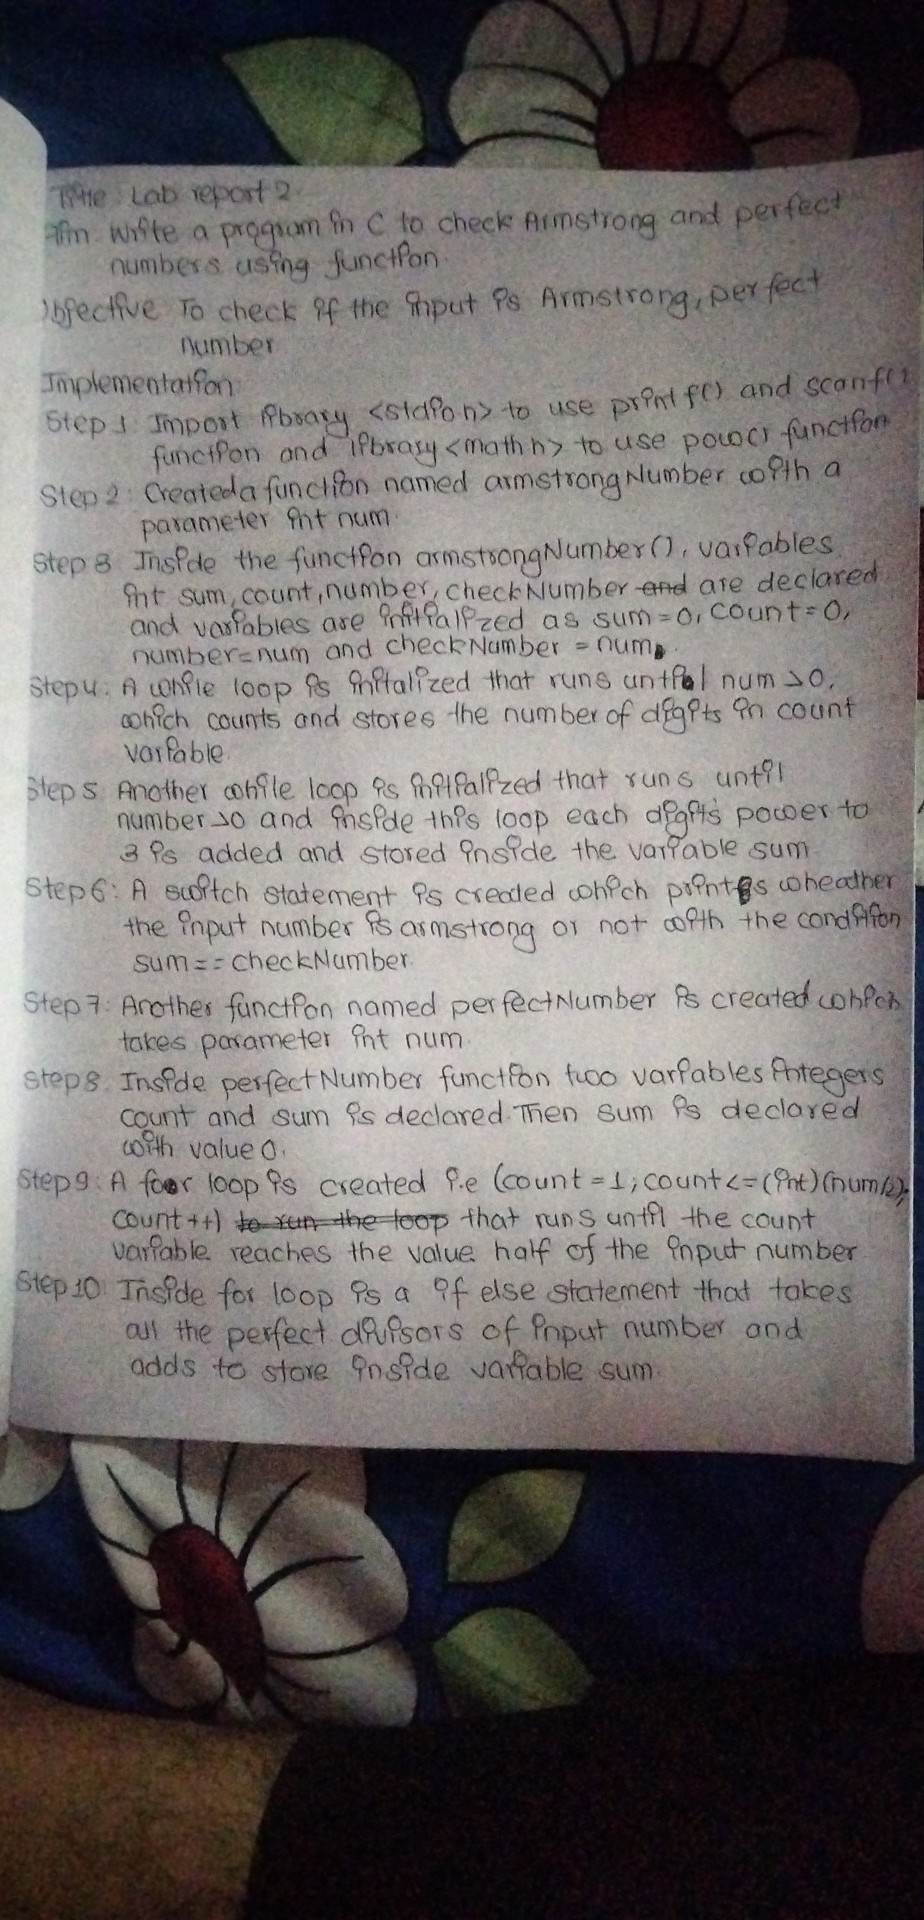 Title: Lab report 2
Aim: Write a program in C to check Armstrong and perfect
numbers using function.
Objective To check if the input is Armstrong, perfect
number
Implementation:
Step 1: Import library <stdio.h> to use printf() and scanf()
function and library <math.h> to use power function
Step 2: Created a function named armstrongNumber with a
parameter int num.
Step 3 Inside the function armstrongNumber(), variables
int sum, count, number, checkNumber and are declared
and variables are initialized as sum=0, count=0,
number=num and checkNumber = num.
Step 4: A while loop is initalized that runs until num >0,
which counts and stores the number of digits in count
variable.
Step 5 Another while loop is initialized that runs until
number >0 and inside this loop each digits power to
3 is added and stored inside the variable sum
Step 6: A switch statement is created which prints wheather
the input number is armstrong or not with the condition
sum==checkNumber.
Step 7: Another function named perfectNumber is created which
takes parameter int num.
Step 8. Inside perfectNumber function two variables integers
count and sum is declared. Then sum is declared
with value 0.
Step 9: A for loop is created i.e (count=1; count<=(int)(num/2);
count++) to run the loop that runs until the count
variable reaches the value half of the input number
Step 10: Inside for loop is a if else statement that takes
all the perfect divisors of input number and
adds to store inside variable sum.